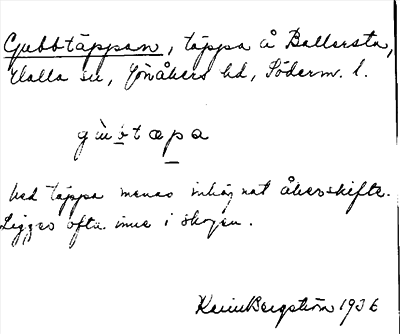 Gubbtäppan, täppa å Ballersta,
Halla sn, Jönåkers hd, Söderm. l.
gu̇btæpa
Med täppa menas inhägnat åkerskifte.
Ligger ofta inne i skogen.
Karin Bergström 1936